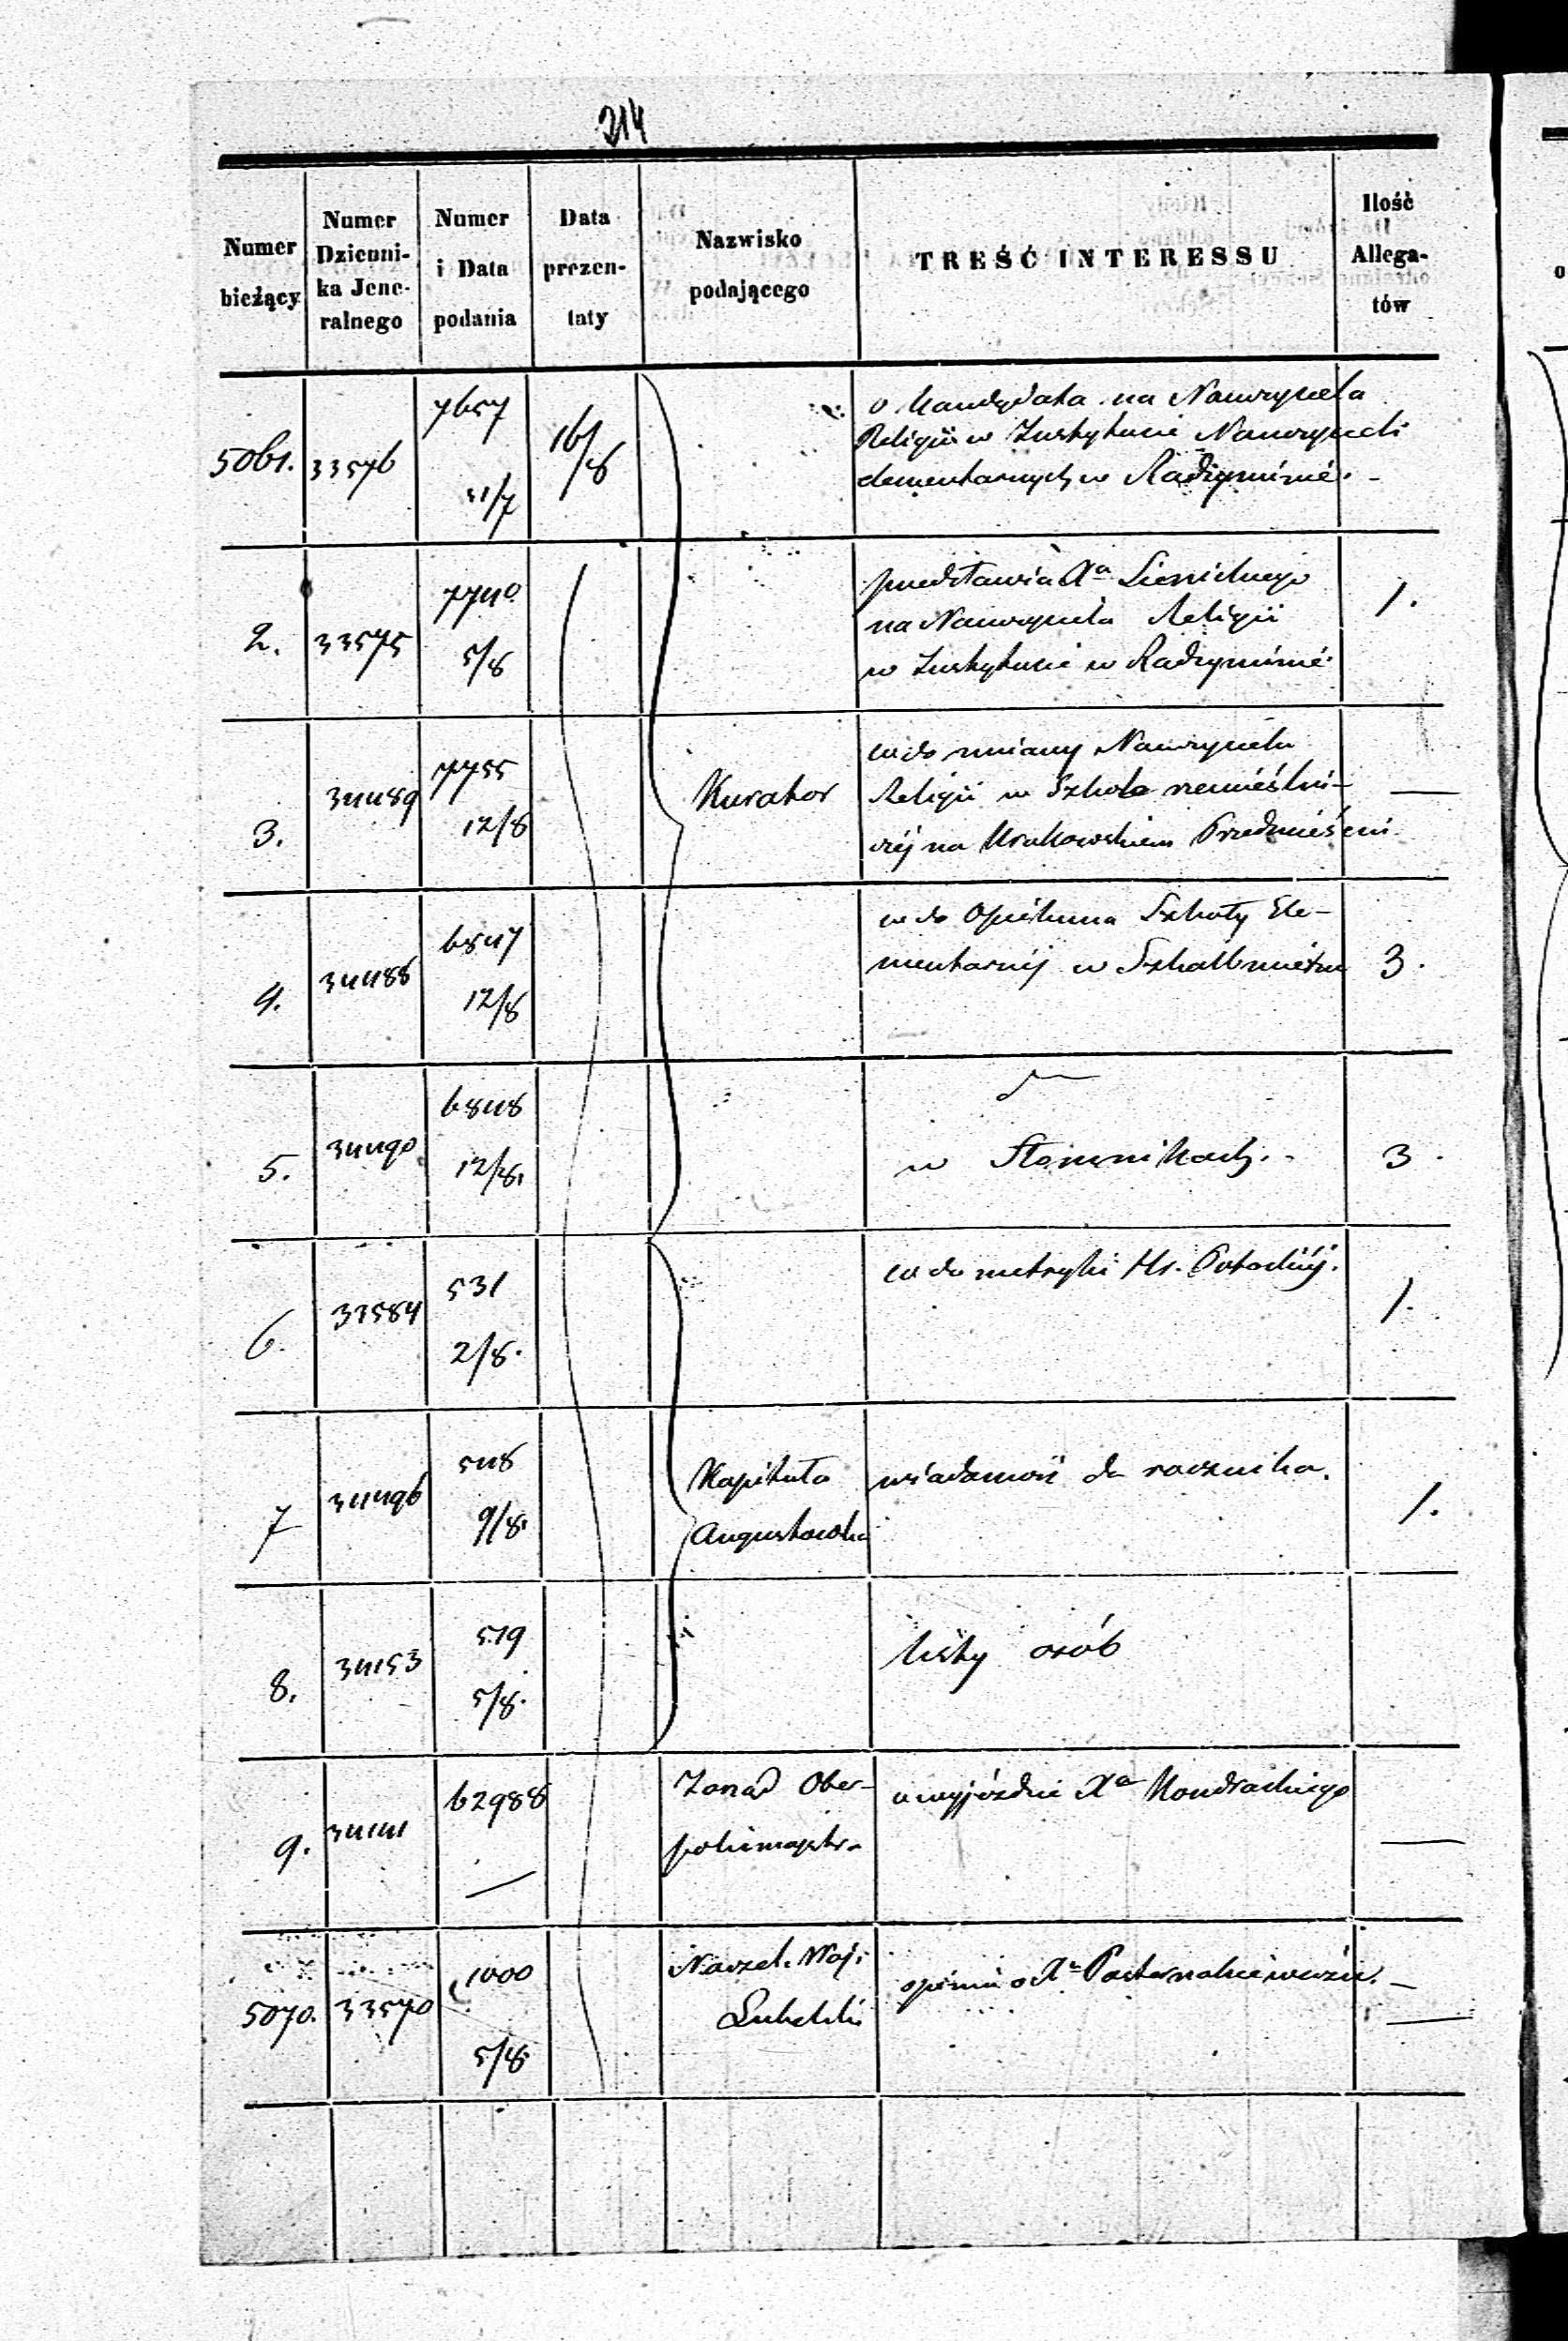 214
Numer bieżący
Numer Dzienni-ka Jene-ralnego
Numer i Data podania
Data prezen-taty
Nazwisko podającego
TREŚĆ INTERESSU
Ilość Allega-tów
5061. 33576 7657 31/7 16/8
o Kandydata na Nauczyciela
Religii w Instytucie Nauczycieli
elementarnych w Radzyminie. -
2. 33575 7740 5/8
przedstawia Xa Sienickiego 1.
na Nauczyciela Religii
w Instytucie w Radzyminie
3. 34489 7755 12/8 Kurator
co do zmiany Nauczyciela
Religii w Szkole rzemieślni- —
czéj na Krakowskiem Przedmieściu.
4. 34488 6847 12/8
co do Opiekuna Szkoły Ele-
mentarnéj w Skalbmierzu 3.
5. 34490 6848 12/8.
w Słomnikach. - 3.
6. 33584 531 2/8.
co do metryki Hr. Potockiéj. 1.
7 34496 548 9/8.
Kapituła
Augustowska
wiadomość do rocznika. 1.
8. 34153 519 5/8.
listy osób
9. 34141 62988 —
Zarząd Ober-
policmajstr.
o wyjeździe Xa Kondrackiego —
5070. 33570 1000 5/8.
Naczel. Woj.
Lubelski
opinia o Xu Pasternakiewiczu. —